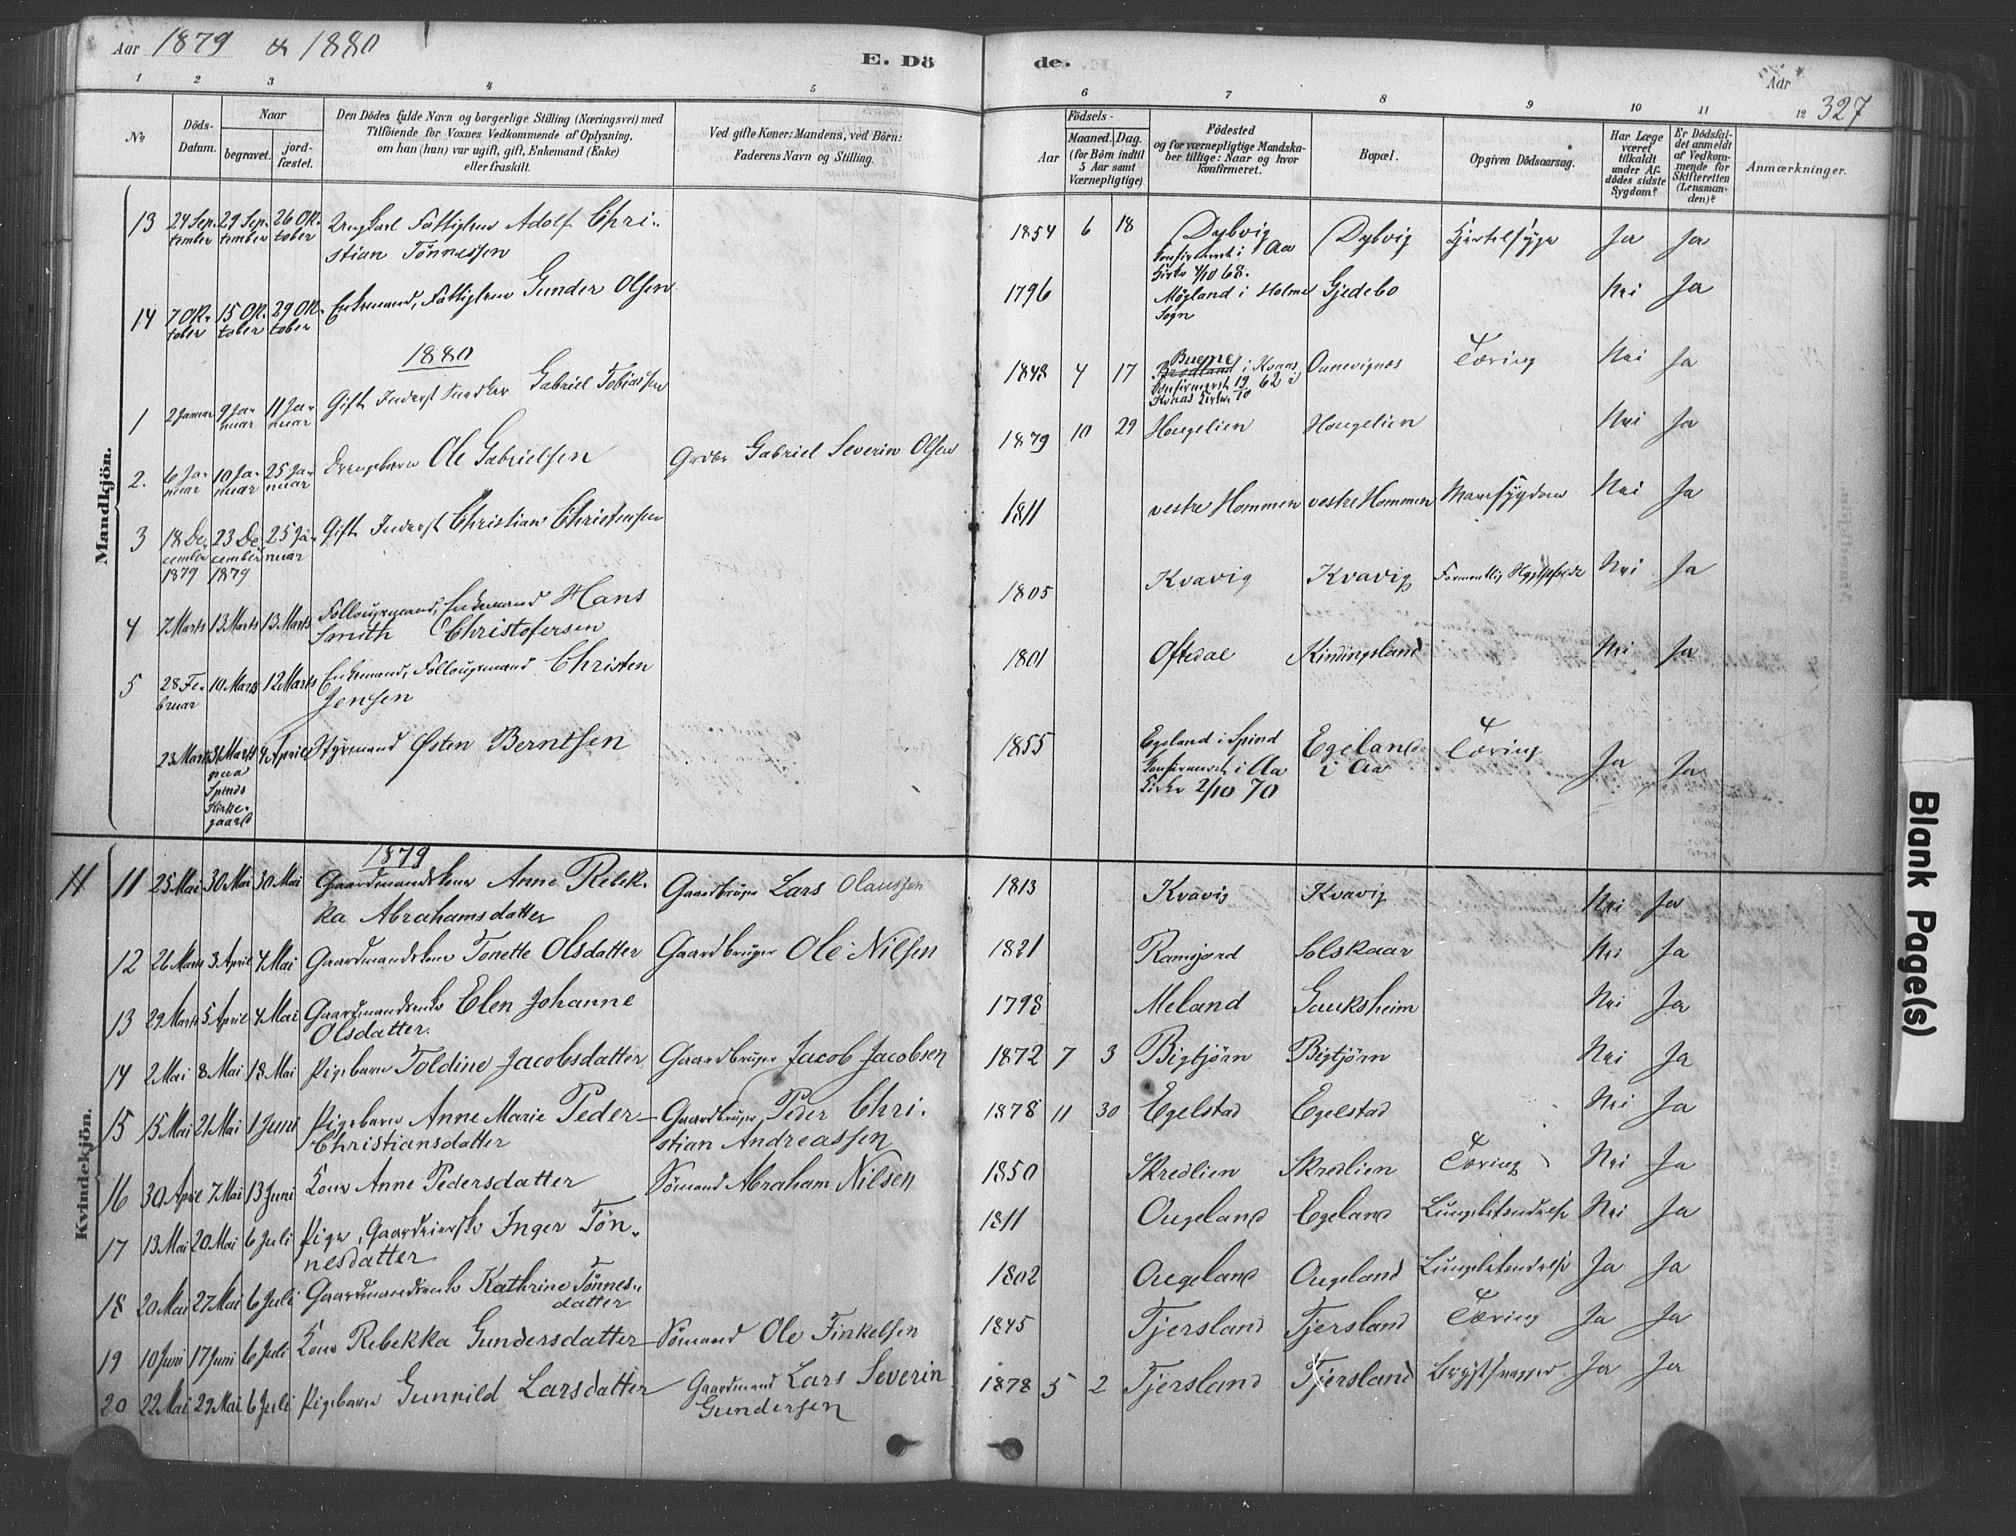 Aar 1879 & 1880
E. Dö
de.
Aar
327
1 2 3 4 5 6 7 8 9 10 11 12
No
Döds-
Datum.
Naar
begravet.
jord-
fæstet.
Den Dödes fulde Navn og borgerlige Stilling (Næringsvei) med
Tilföiende for Voxnes Vedkommende af Oplysning,
om han (hun) var ugift, gift, Enkemand (Enke)
eller fraskilt.
Ved gifte Koner: Mandens, ved Börn:
Faderens Navn og Stilling.
Födsels-
Aar
Maaned. Dag.
(for Börn indtil
5 Aar samt
Værnepligtige)
Födested
og for værnepligtige Mandska-
ber tillige: Naar og hvor
konfirmeret.
Bopæl.
Opgiven Dödsaarsag.
Har Læge
været
tilkaldt
under Af-
dödes sidste
Sygdom?
Er Dödsfal-
det anmeldt
af Vedkom-
mende for
Skifteretten
(Lensman-
den)?
Anmærkninger.
Mandkjön.
13 24 Sep- 29 Sep- 26 Ok- Ungkarl Fattiglem Adolf Chri- 1854 6 18 Dybvig Dybvig Kjertelsyge Ja Ja
tember tember tober stian Tönnessen Konfirmeret i Aa
Kirke 4/10 68.
14 7 Ok- 15 Ok- 29 Ok- Enkemand, Fattiglem Gunder Olsen 1796 Mögland i Holme Gjedebo Nei Ja
tober tober tober Sogn
1880
1 2 Januar 9 Ja- 11 Ja- Gift Inderst Snedker Gabriel Tobiassen 1848 4 17 Buene i Kvaas Ounevignes Tæring Nei Ja
nuar nuar Konfirmeret 19/10 62 i
Kvaas Kirke
2. 6 Ja- 10 Ja- 25 Ja- Drengebarn Ole Gabrielsen Grdbr Gabriel Severin Olsen 1879 10 29 Hougelien Hougelien Nei Ja
nuar nuar nuar
3 18 De- 23 De- 25 Ja- Gift Inderst Christian Christensen 1811 vestre Hommen vestre Hommen Mavesygdom Nei Ja
cember cember nuar
1879 1879
4 7 Marts 13 Marts 13 Marts Follougemand, Enkemand Hans 1805 Kvavig Kvavig Nei Ja
Smith Christofersen
5 28 Fe- 10 Marts 12 Marts Enkemand, Follougemand Christen 1801 Oftedal Kindingsland Nei Ja
bruar Jensen
23 Marts 31 Marts 4 April Styrmand Østen Berntsen 1855 Egeland i Spind Egeland Tæring Ja Ja
paa Konfirmeret i Aa i Aa
Spinds Kirke 2/10 70
Kirke-
gaard
Kvindekjön.
1879
11 11 25 Mai 30 Mai 30 Mai Gaardmandskone Anne Rebek- Gaardbruger Lars Olaussen 1813 Kvavig Kvavig Nei Ja
ka Abrahamsdatter
12 26 Marts 3 April 4 Mai Gaardmandskone Tonette Olsdatter Gaardbruger Ole Nilsen 1821 Ramsjord Solskaar Nei Ja
13 29 Marts 5 April 4 Mai Gaardmandsenke Elen Johanne 1798 Meland Gauksheim Nei Ja
Olsdatter.
14 2 Mai 8 Mai 18 Mai Pigebarn Toldine Jacobsdatter Gaardbruger Jacob Jacobsen 1872 7 3 Bigtjörn Bigtjörn Nei Ja
15 15 Mai 21 Mai 1 Juni Pigebarn Anne Marie Peder- Gaardbruger Peder Chri- 1878 11 30 Egelstad Egelstad Nei Ja
Christiansdatter stian Andreassen
16 30 April 7 Mai 13 Juni Kone Anne Pedersdatter Sömand Abraham Nilsen 1850 Skredlien Skredlien Tæring Nei Ja
17 13 Mai 20 Mai 6 Juli Pige, Gaardeierske Inger Tön- 1811 Ougeland Egeland Lungebetændelse Nei Ja
nesdatter
18 20 Mai 27 Mai 6 Juli Gaardmandsenke Kathrine Tönnes- 1802 Ougeland Ougeland Lungebetændelse Ja Ja
datter
19 10 Juni 17 Juni 6 Juli Kone Rebekka Gundersdatter Sömand Ole Finkelsen 1845 Tjersland Tjersland Tæring Ja Ja
20 22 Mai 29 Mai 6 Juli Pigebarn Gunnild Larsdatter Gaardmand Lars Severin 1878 5 2 Tjersland Tjersland Ja Ja
Gundersen
Blank Page(s)